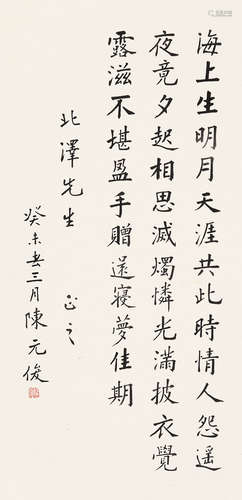 海上生明月天涯共此時情人怨遥
夜竟夕起相思滅燭憐光滿披衣覺
露滋不堪盈手贈還寝夢佳期
北澤先生 正之
癸未春三月陳元俊